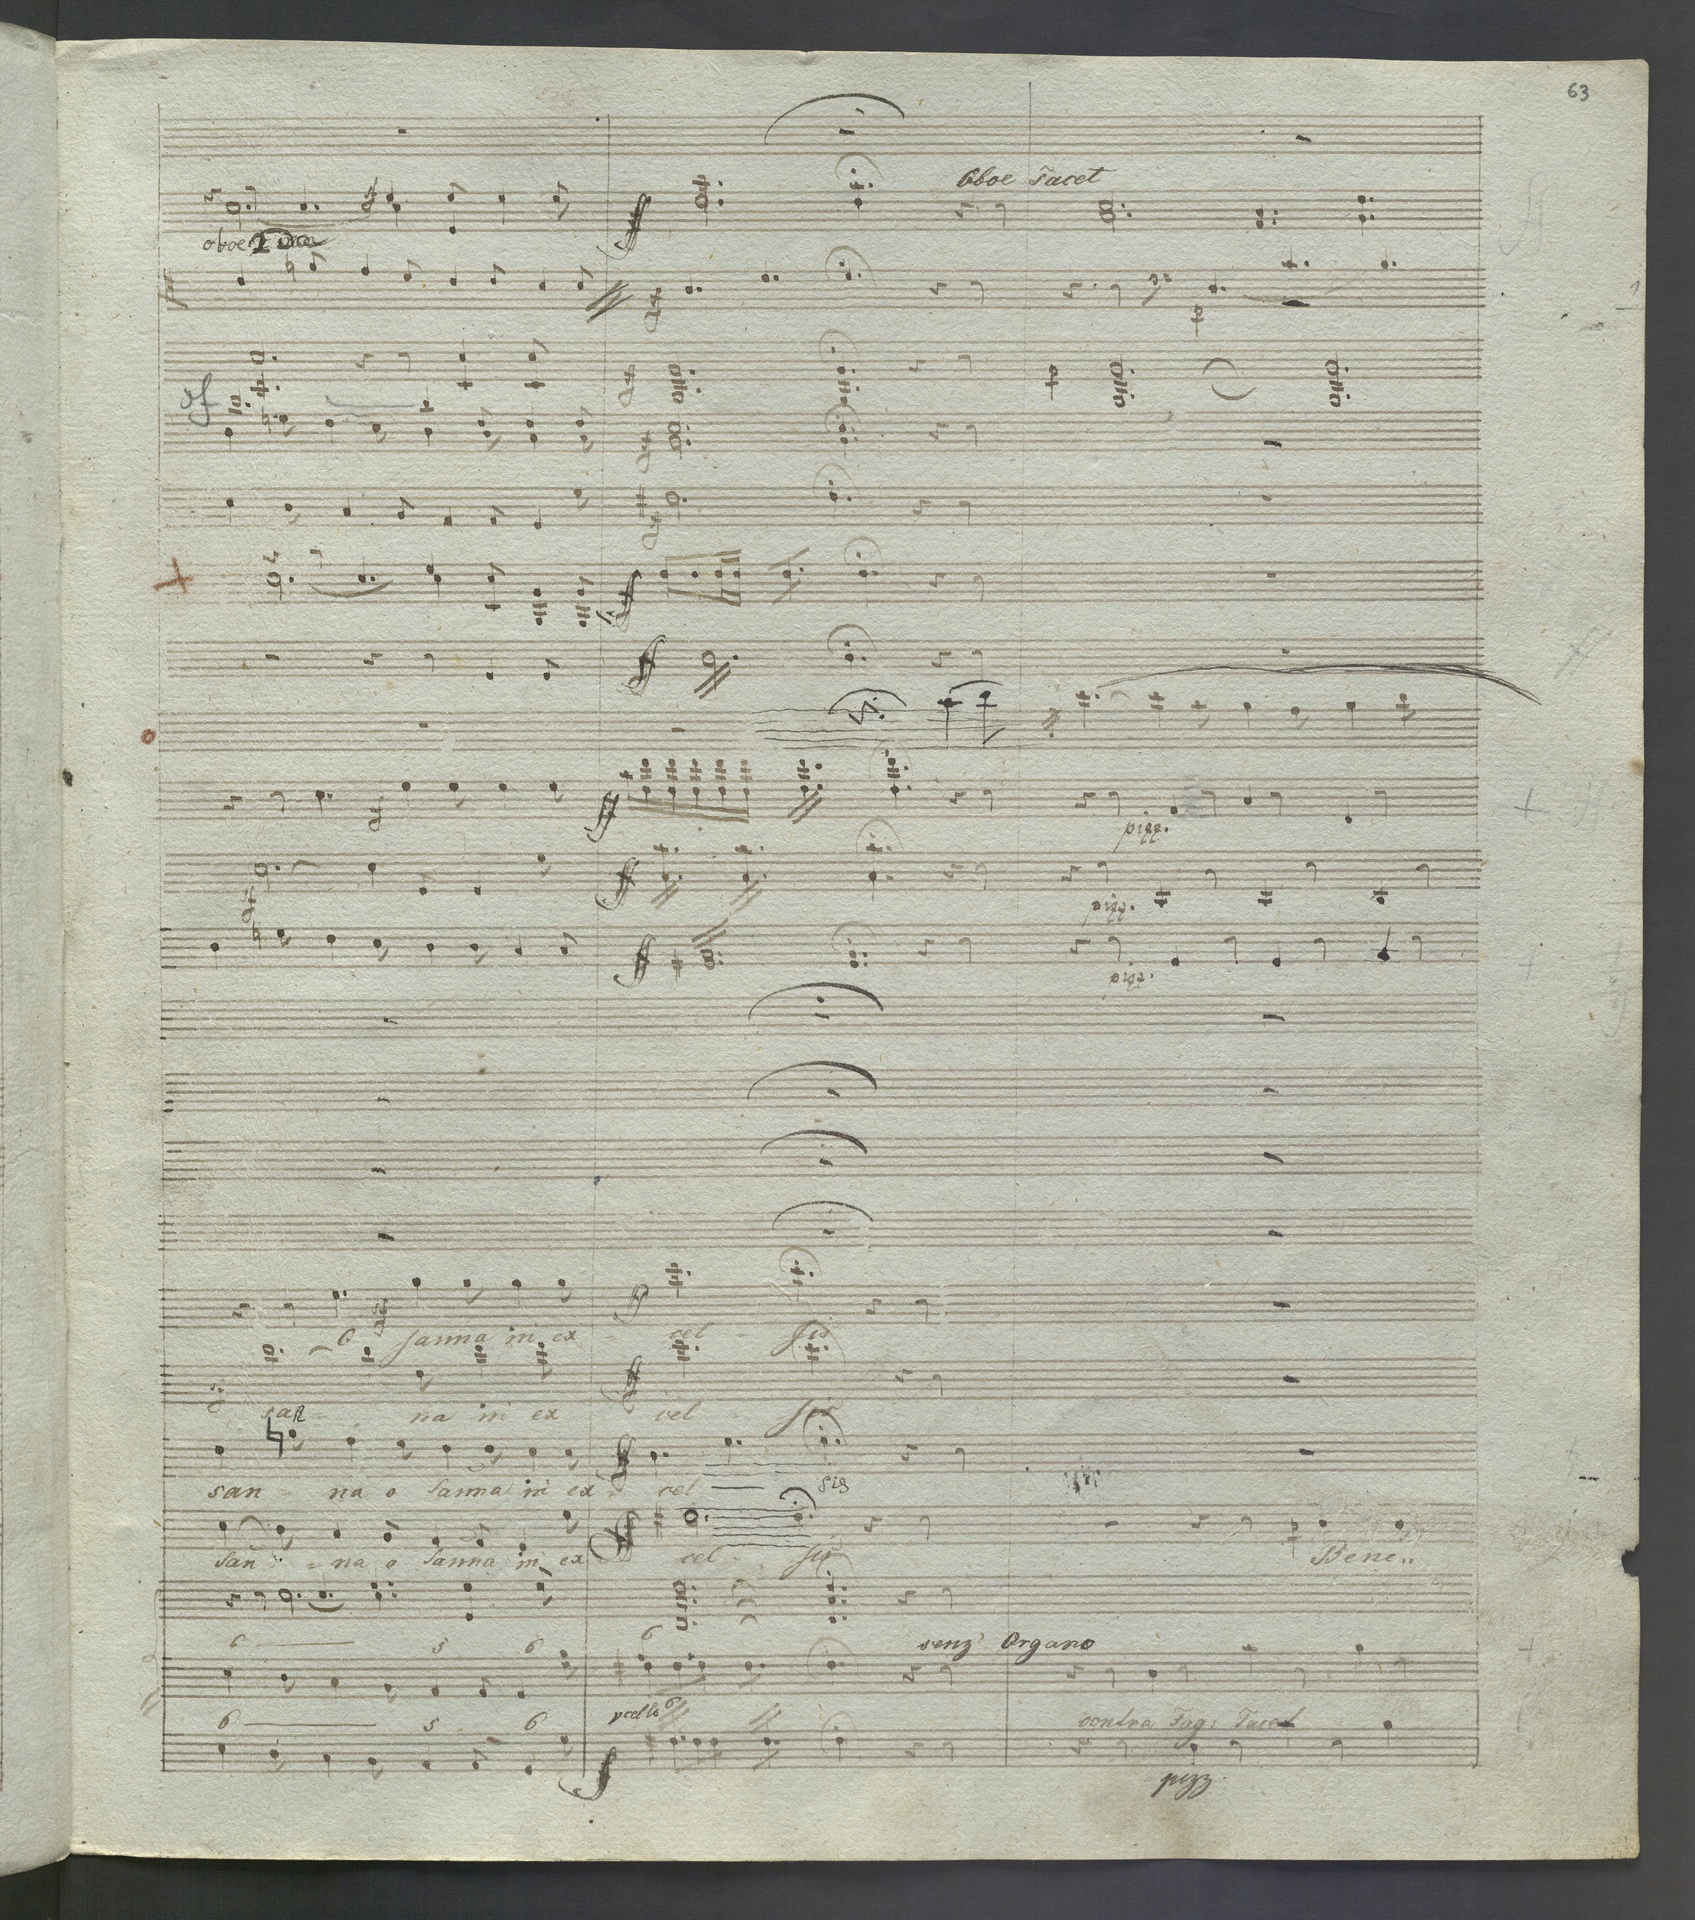 63
Oboe Tacet
oboe
ff
sf
ff
ff
ff
ff
pizz.
ff
pizz.
ff
pizz.
O sanna in ex - cel - sis
ff
san na in ex cel sis
ff
san - na o sanna in ex - cel sis
ff
san - na o sanna in ex cel - sis Bene..
6 5 6 6 senz' Organo
6 5 6 vcello 6 contra Fag: Tacet
ff pizz